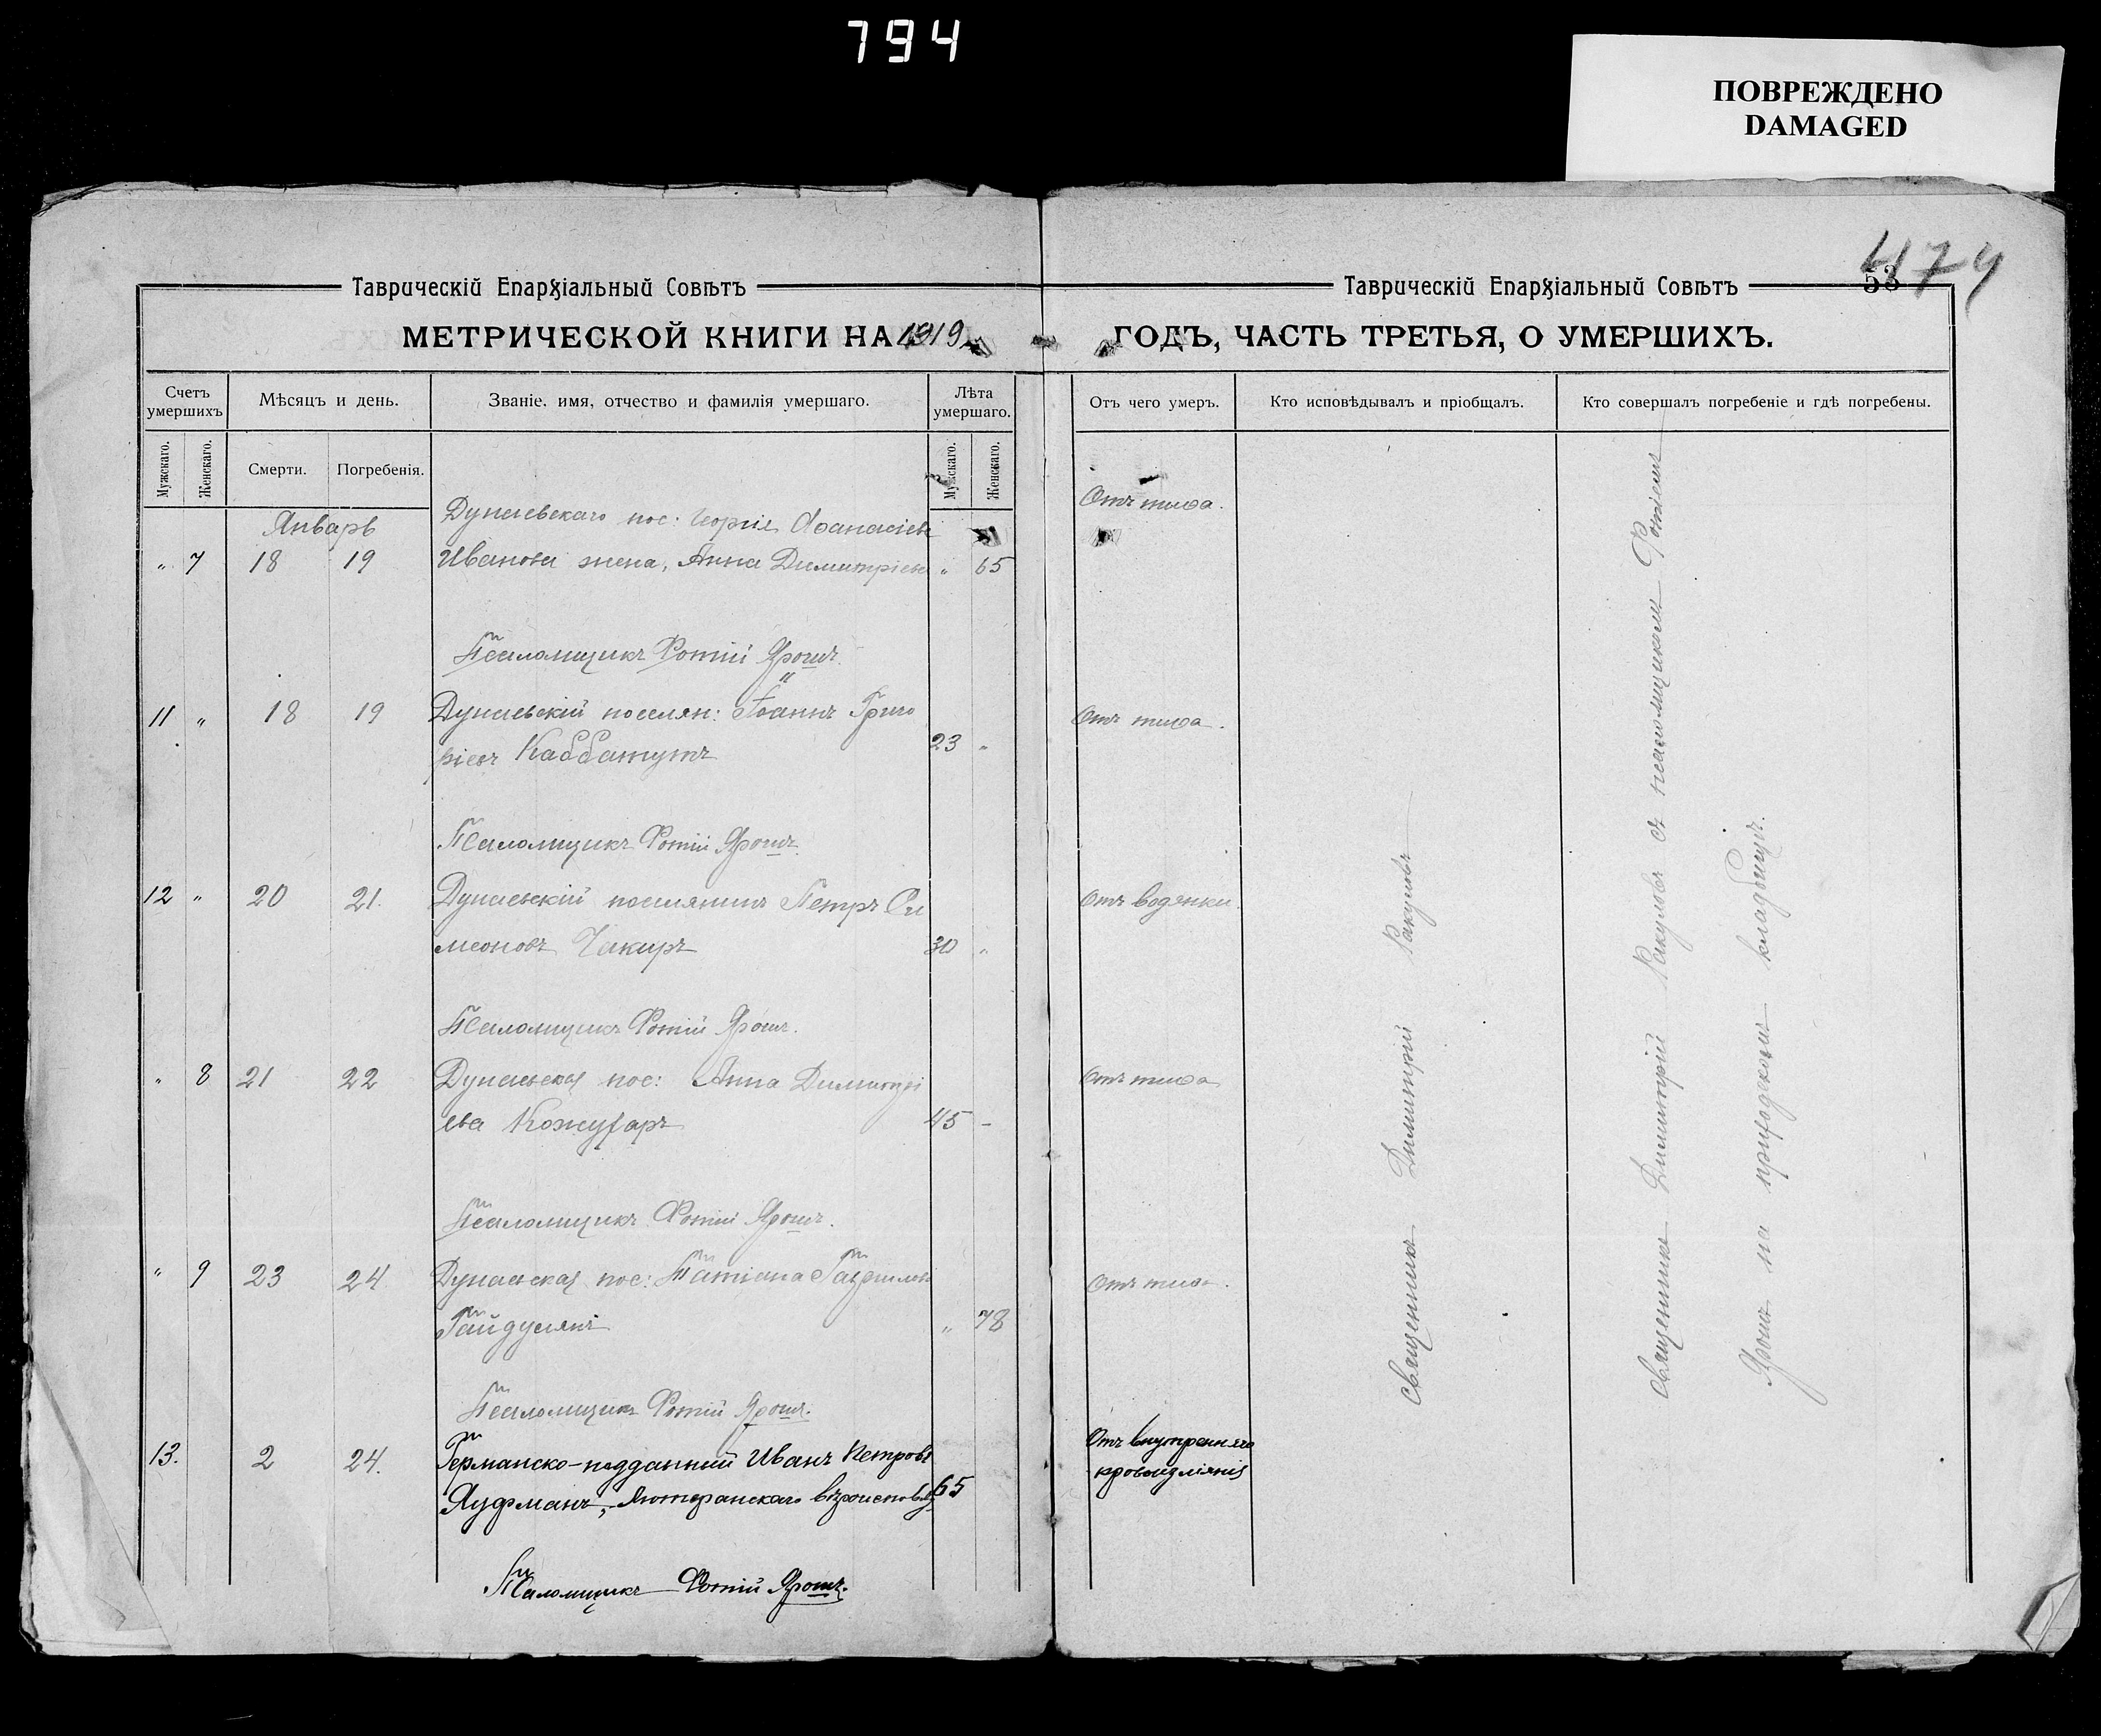 794
ПОВРЕЖДЕНО
DAMAGED
4174
53
Таврическій Епархіальный Совѣтъ
Таврическій Епархіальный Совѣтъ
МЕТРИЧЕСКОЙ КНИГИ НА 1919
ГОДЪ, ЧАСТЬ ТРЕТЬЯ, О УМЕРШИХЪ.
Счетъ умершихъ
Мѣсяцъ и день.
Званіе, имя, отчество и фамилія умершаго.
Лѣта умершаго.
Отъ чего умеръ.
Кто исповѣдывалъ и пріобщалъ.
Кто совершалъ погребеніе и гдѣ погребены.
Мужскаго.
Женскаго.
Смерти.
Погребенія.
Мужскаго.
Женскаго.
Январь
Дунаевскаго пос: Георгія Афанасіев
Отъ тифа.
" 7 18 19 Иванова жена, Анна Димитріев " 65
Псаломщикъ Фотій Ярошъ.
11 " 18 19 Дунаевскій поселян: Іоаннъ Григо
Отъ тифа.
ріевъ 23 "
Псаломщикъ Фотій Ярошъ.
12 " 20 21. Дунаевскій поселянинъ Петръ Си
Отъ водянки.
меоновъ Чакиръ 30 "
Псаломщикъ Фотій Ярошъ.
" 8 21 22 Дунаевская пос: Анна Димитрі
Отъ тифа
ева Кожухаръ 45 -
Псаломщикъ Фотій Ярошъ.
" 9 23 24 Дунаевская пос: Татіана
Отъ тифа.
Гайдулянъ " 78
Псаломщикъ Фотій Ярошъ.
13. 2 24. Германско-подданный Иванъ Петровъ
Отъ внутренняго
Лютеранскаго вѣроисповѣд 65
кровоизліянія
Псаломщикъ Фотій Ярошъ.
Священникъ Димитрій Ракуловъ
Священникъ Димитрій Ракуловъ съ псаломщикомъ Фотіемъ
Ярошъ на приходскомъ кладбищѣ.